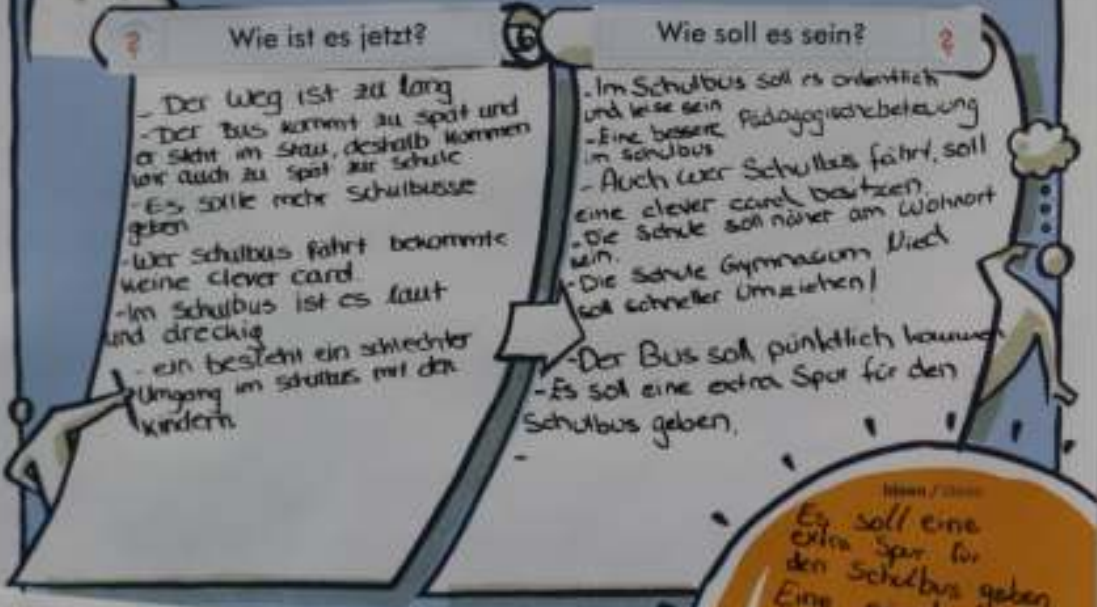 Wie ist es jetzt?
- Der Weg ist zu lang
- Der Bus kommt zu spät und
er steht im Stau, deshalb kommen
wir auch zu spät zur Schule
- Es sollte mehr Schulbusse
geben
- Wer Schulbus fährt bekommte
keine clever card.
- Im Schulbus ist es laut
und dreckig
- ein besteht ein schlechter
Umgang im Schulbus mit den
Kindern
Wie soll es sein?
- Im Schulbus soll es ordentlich
und leise sein
- Eine bessere Pädagogischebeteuung
im Schulbus
- Auch wer Schulbus fährt, soll
eine clever card besitzen.
- Die Schule soll näher am Wohnort
sein.
- Die Schule Gymnasium Nied
soll schneller Umziehen!
- Der Bus soll pünktlich kommen
- Es soll eine extra Spur für den
Schulbus geben.
-
Ideen /
Es soll eine
extra Spur für
den Schulbus geben
Eine